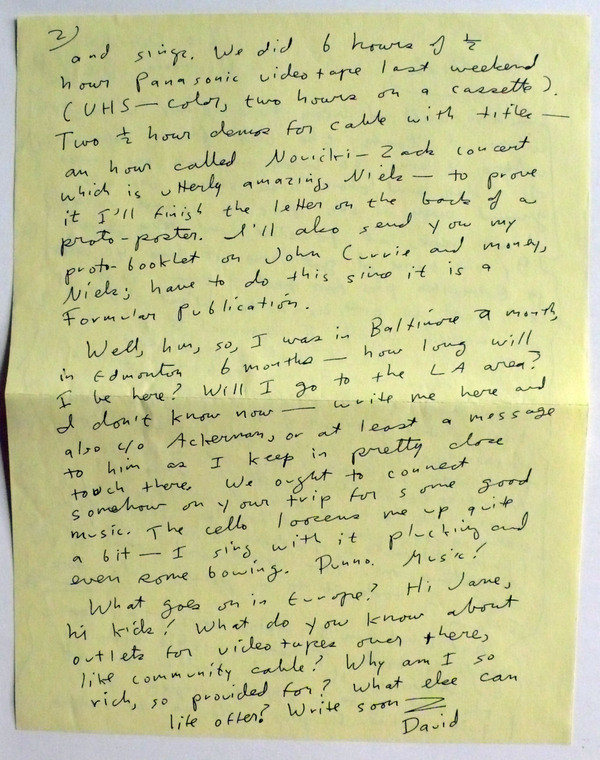 2)
and sings. We did 6 hours of ½
hour Panasonic videotape last weekend
(VHS — color, two hours on a cassette).
Two ½ hour demos for cable with titles —
an hour called Novicki-Zack concert
which is utterly amazing, Niels — to prove
it I'll finish the letter on the back of a
proto-poster. I'll also send you my
proto-booklet on John Currie and money,
Niels; have to do this since it is a
Formular publication.
Well, hm, so, I was in Baltimore a month,
in Edmonton 6 months — how long will
I be here? Will I go to the LA area?
I don't know now — write me here and
also c/o Ackerman, or at least a message
to him as I keep in pretty close
touch there. We ought to connect
somehow on your trip for some good
music. The cello loosens me up quite
a bit — I sing with it plucking and
even some bowing. Dunno. Music!
What goes on in Europe? Hi Jane,
hi kids! What do you know about
outlets for videotapes over there,
like community cable? Why am I so
rich, so provided for? What else can
life offer? Write soon
David